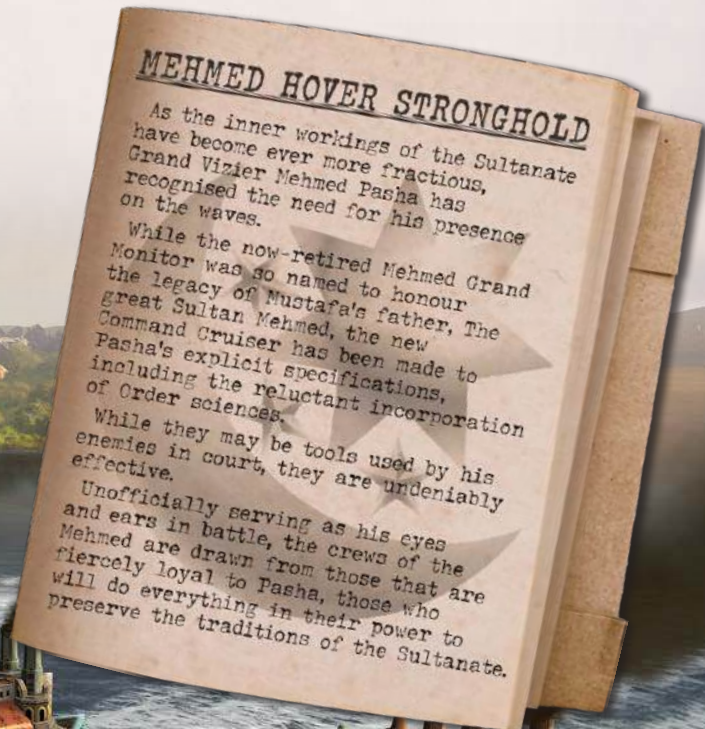 MEHMED HOVER STRONGHOLD
As the inner workings of the Sultanate
have become ever more fractious,
Grand Vizier Mehmed Pasha has
recognised the need for his presence
on the waves.
While the now-retired Mehmed Grand
Monitor was so named to honour
the legacy of Mustafa's father, The
great Sultan Mehmed, the new
Command Cruiser has been made to
Pasha's explicit specifications,
including the reluctant incorporation
of Order sciences.
While they may be tools used by his
enemies in court, they are undeniably
effective.
Unofficially serving as his eyes
and ears in battle, the crews of the
Mehmed are drawn from those that are
fiercely loyal to Pasha, those who
will do everything in their power to
preserve the traditions of the Sultanate.